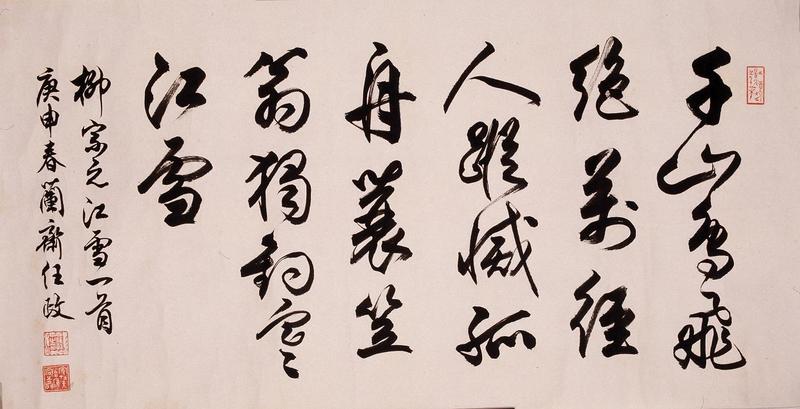 千山鳥飛
絶萬徑
人蹤滅孤
舟蓑笠
翁獨釣寒
江雪
柳宗元江雪一首
庚申春蘭齋任政